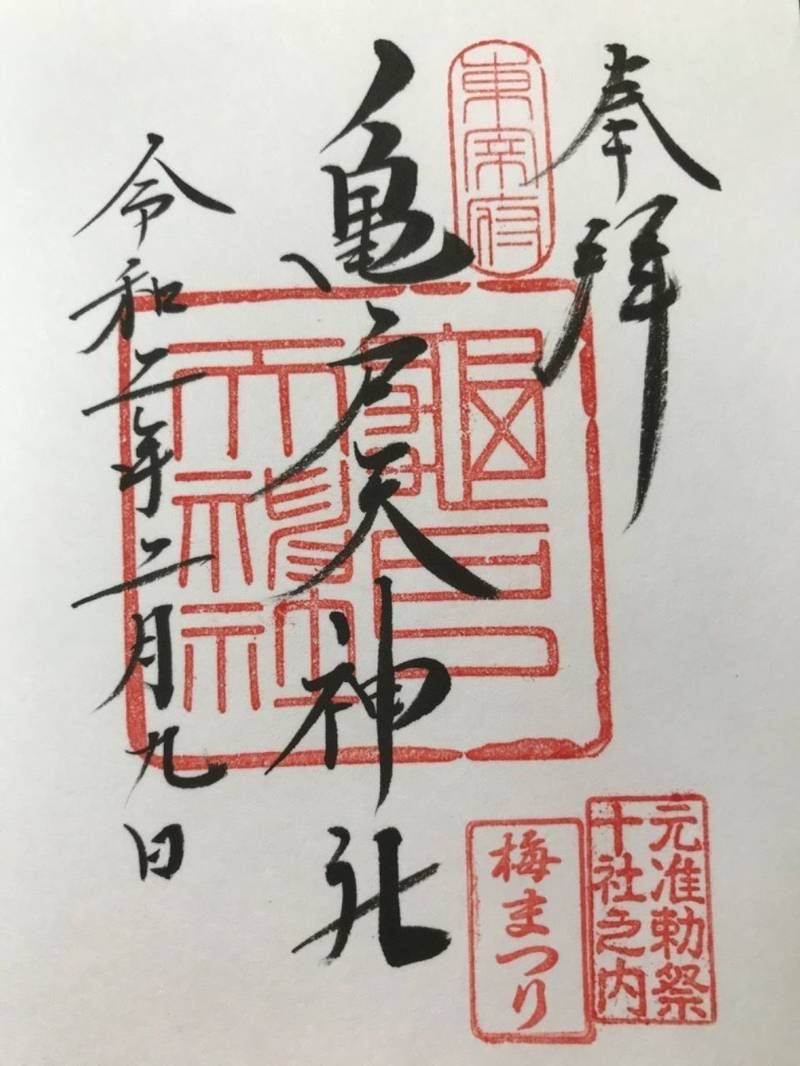 奉拝
東宰府
亀戸天神社
龜戸
天神社
令和二年二月九日
元准勅祭
十社之内
梅まつり